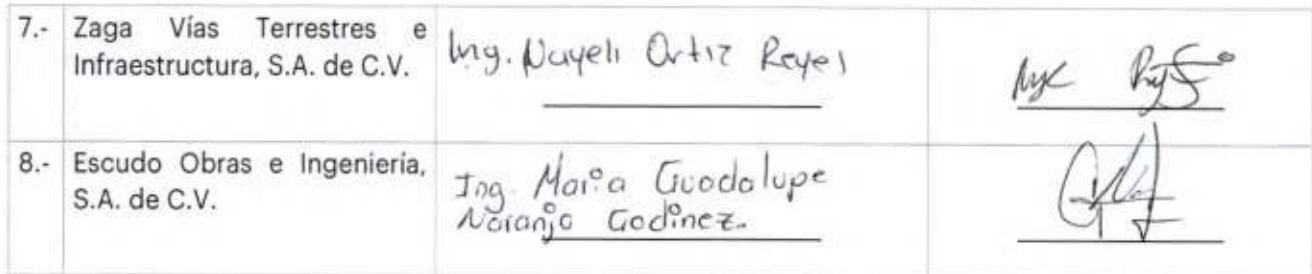 7.- Zaga Vías Terrestres e
Infraestructura, S.A. de C.V.
Ing. Nayeli Ortiz Reyes
8.- Escudo Obras e Ingeniería,
S.A. de C.V.
Ing. Maria Guadalupe
Naranjo Godinez.